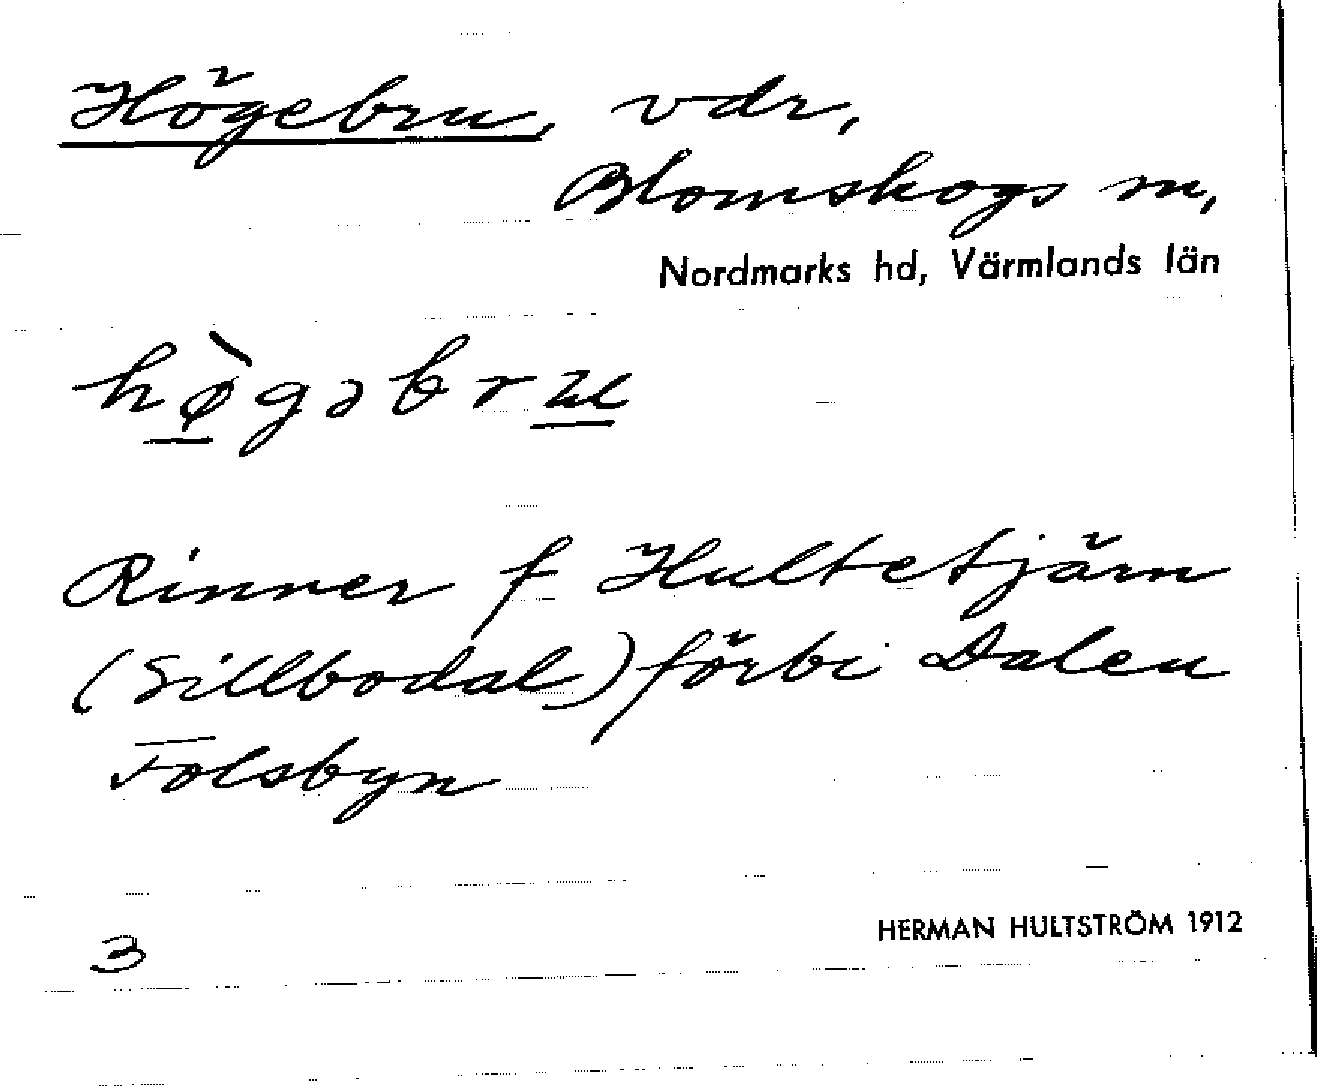 Högebru, vdr,
Blomskogs sn,
Nordmarks hd, Värmlands län
hø̀gəbru
Rinner f Hultetjärn
(Sillbodal) förbi Dalen
Folsbyn
3
HERMAN HULTSTRÖM 1912